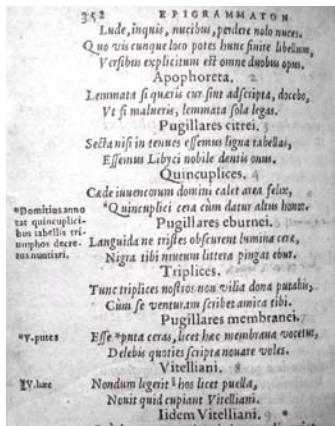 352 EPIGRAMMATON
Lude, inquis, nucibus, perdere nolo nuces.
Quo vis cunque loco potes hunc finire libellum,
Versibus explicitum est omne duobus opus.
Apophoreta. 2
Lemmata si quæris cur sint adscripta, docebo,
Vt si malueris, lemmata sola legas.
Pugillares citrei. 3
Secta nisi in tenues essemus ligna tabellas,
Essemus Libyci nobile dentis onus.
Quincuplices. 4
Cæde iuuencorum domini calet area felix,
*Quincuplici cera cùm datur altus honor.
*Domitius anno
tat quincuplici-
bus tabellis tri-
umphos decre-
tos nuntiari.
Pugillares eburnei.
Languida ne tristes obscurent lumina ceræ,
Nigra tibi niueum littera pingat ebur.
Triplices.
Tunc triplices nostros non vilia dona putabis,
Cùm se venturam scribet amica tibi.
Pugillares membranei.
*V. putes
Esse *puta ceras, licet hæc membrana vocetur,
Delebis quoties scripta nouare voles.
Vitelliani. 8
V. hæc
Nondum legerit hos licet puella,
Nouit quid cupiant Vitelliani.
Iidem Vitelliani. 9